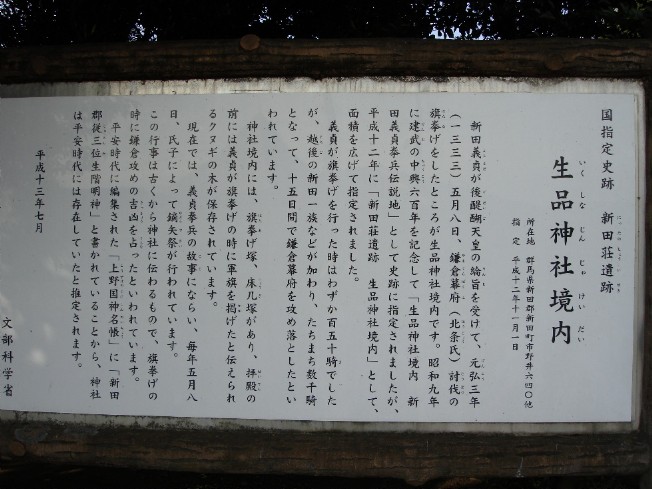 国指定史跡 新田荘遺跡
生品神社境内
所在地 群馬県新田郡新田町市野井六四〇他
指定 平成十二年十一月一日
新田義貞が後醍醐天皇の綸旨を受けて、元弘三年
(一三三三)五月八日、鎌倉幕府(北条氏)討伐の
旗挙げをしたところが生品神社境内です。昭和九年
に建武の中興六百年を記念して「生品神社境内 新
田義貞挙兵伝説地」として史跡に指定されましたが、
平成十二年に「新田荘遺跡 生品神社境内」として、
面積を広げて指定されました。
義貞が旗挙げを行った時はわずか百五十騎でした
が、越後の新田一族などが加わり、たちまち数千騎
となって、十五日間で鎌倉幕府を攻め落としたとい
われています。
神社境内には、旗挙げ塚、床几塚があり、拝殿の
前には義貞が旗挙げの時に軍旗を掲げたと伝えられ
るクヌギの木が保存されています。
現在では、義貞挙兵の故事にならい、毎年五月八
日、氏子によって鏑矢祭が行われています。
この行事は古くから神社に伝わるもので、旗挙げの
時に鎌倉攻めの吉凶を占ったといわれています。
平安時代に編集された「上野国神名帳」に「新田
郡従三位生階明神」と書かれていることから、神社
は平安時代には存在していたと推定されます。
平成十三年七月
文部科学省